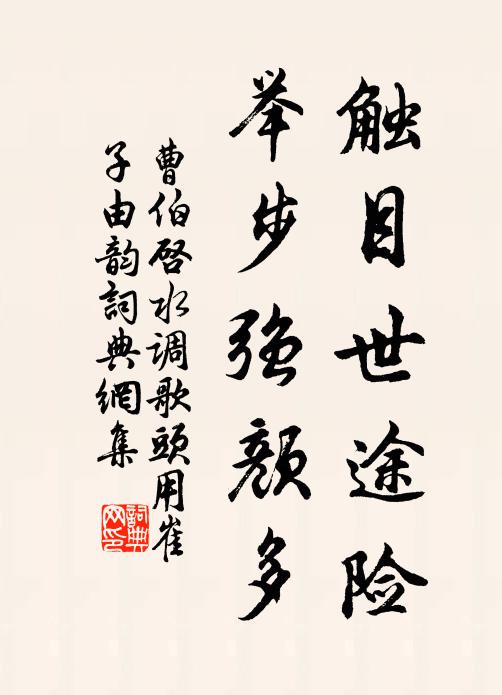 触目世途险
举步强颜多
曹伯启水调歌頭用崔
子由韵詞典網集
詞典
网印